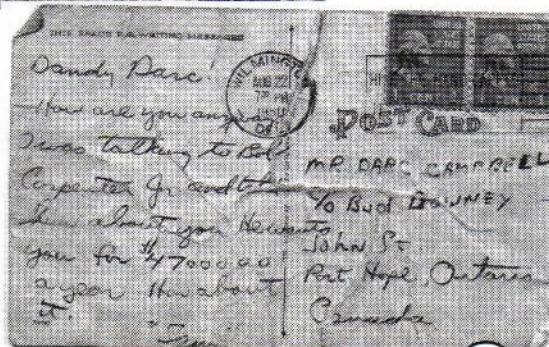 THIS SPACE FOR WRITING MESSAGES
Dandy Darc!
How are you anyway
I was talking to Bob
Carpenter Jr and told
him about you He wants
you for $47000.00
a year How about
it.
WILMINGTON
AUG 22
PM
DEL
POST CARD
MR DARC CAMPBELL
c/o Bud Downey
John St.
Port Hope, Ontario
Canada